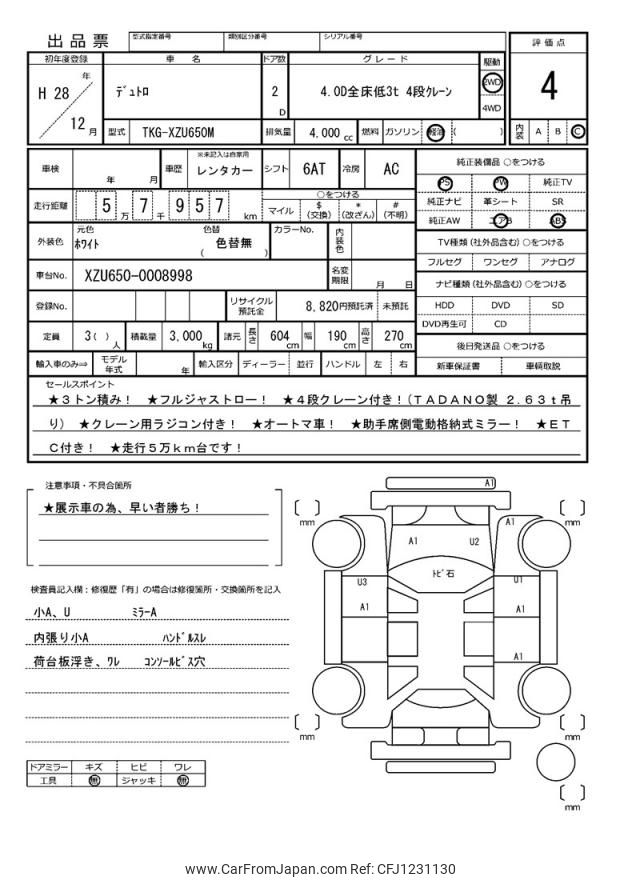 出品票
型式指定番号 類別区分番号 シリアル番号
評価点
4
内装 A B C
初年度登録 車名 ドア数 グレード 駆動
H 28 年 12 月
デュトロ
2 D
4.0D全床低3t 4段クレーン
2WD
4WD
型式 TKG-XZU650M 排気量 4,000 cc 燃料 ガソリン 軽油 ( )
車検 年 月 車歴 ※未記入は自家用 レンタカー シフト 6AT 冷房 AC
走行距離 5 万 7 千 9 5 7 km
○をつける
マイル $(交換) *(改ざん) #(不明)
外装色 元色 ホワイト 色替 ( 色替無 ) カラーNo. 内装色
車台No. XZU650-0008998 名変期限 月 日
登録No. リサイクル預託金 8,820円預託済 未預託
定員 3( )人 積載量 3,000 kg 諸元 長さ 604 cm 幅 190 cm 高さ 270 cm
輸入車のみ⇒ モデル年式 年 輸入区分 ディーラー 並行 ハンドル 左 右
純正装備品 ○をつける
PS PW 純正TV
純正ナビ 革シート SR
純正AW エアB ABS
TV種類(社外品含む)○をつける
フルセグ ワンセグ アナログ
ナビ種類(社外品含む)○をつける
HDD DVD SD
DVD再生可 CD
後日発送品 ○をつける
新車保証書 車輌取説
セールスポイント
★3トン積み! ★フルジャストロー! ★4段クレーン付き!(TADANO製 2.63t吊
り) ★クレーン用ラジコン付き! ★オートマ車! ★助手席側電動格納式ミラー! ★ET
C付き! ★走行5万km台です!
注意事項・不具合箇所
★展示車の為、早い者勝ち!
検査員記入欄:修復歴「有」の場合は修復箇所・交換箇所を記入
小A、U ミラーA
内張り小A ハンドルスレ
荷台板浮き、ワレ コンソールビス穴
ドアミラー キズ ヒビ ワレ
工具 無 ジャッキ 無
A1
mm mm
A1
A1 U2
トビ石
U3 U1
A1 A1
A1
mm mm
mm
www.CarFromJapan.com Ref: CFJ1231130